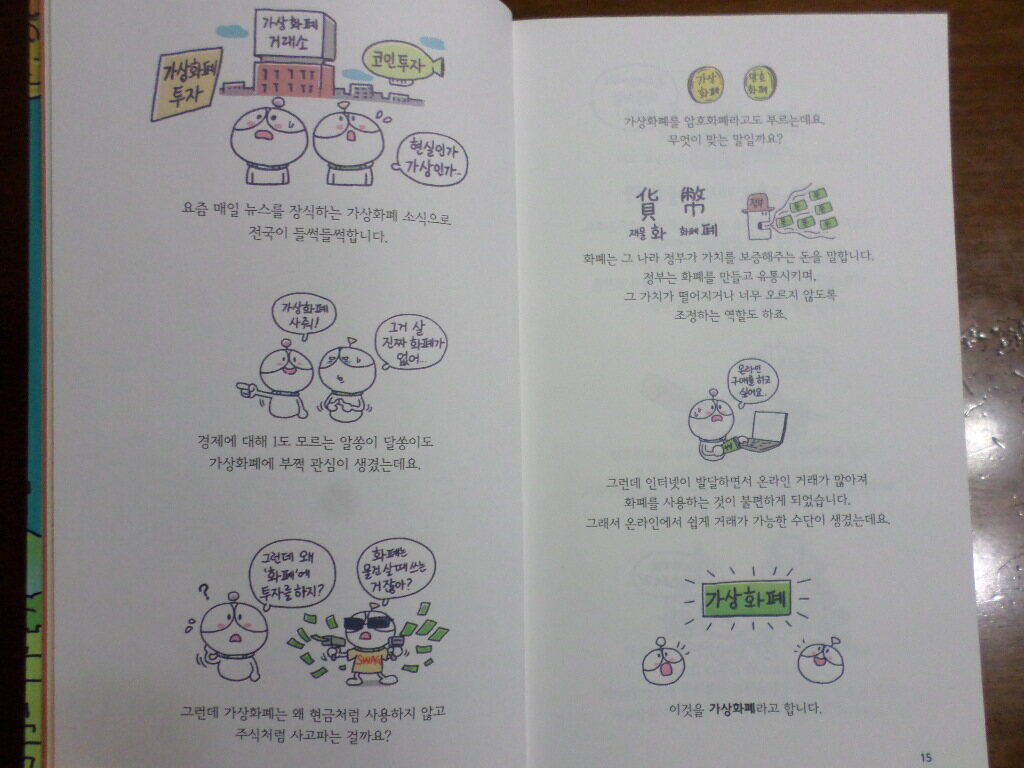 가상화폐
거래소
가상화폐
투자
코인투자
현실인가
가상인가..
요즘 매일 뉴스를 장식하는 가상화폐 소식으로
전국이 들썩들썩합니다.
가상화폐
사줘!
그거 살
진짜 화폐가
없어...
경제에 대해 1도 모르는 알쏭이 달쏭이도
가상화폐에 부쩍 관심이 생겼는데요.
?
그런데 왜
'화폐'에
투자를 하지?
화폐는
물건 살 때 쓰는
거 잖아?
SWAG
그런데 가상화폐는 왜 현금처럼 사용하지 않고
주식처럼 사고파는 걸까요?
가상
화폐
암호
화폐
가상화폐를 암호화폐라고도 부르는데요.
무엇이 맞는 말일까요?
貨 幣
재물 화 화폐 폐
정부
화폐는 그 나라 정부가 가치를 보증해주는 돈을 말합니다.
정부는 화폐를 만들고 유통시키며,
그 가치가 떨어지거나 너무 오르지 않도록
조정하는 역할도 하죠.
온라인
구매를 하고
싶어요.
그런데 인터넷이 발달하면서 온라인 거래가 많아져
화폐를 사용하는 것이 불편하게 되었습니다.
그래서 온라인에서 쉽게 거래가 가능한 수단이 생겼는데요.
가상화폐
이것을 가상화폐라고 합니다.
15